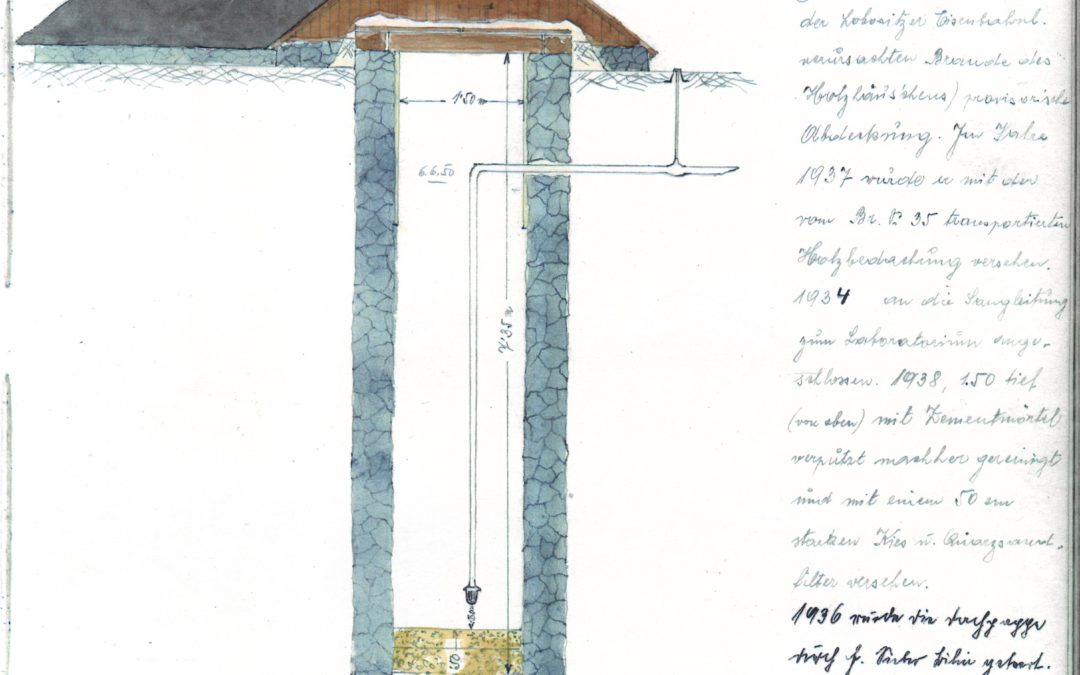 der Lobositzer Eisenbahnl.
verursachten Brande des
Holzhäuschens) provisorische
Abdeckung. Im Jahre
1937 wurde er mit der
vom Br. 35 transportierten
Holzbedachung versehen.
1934 an die Saugleitung
zum Laboratorium ange-
schlossen. 1938, 1.50 tief
(von oben) mit Zementmörtel
verputzt nachher gereinigt
und mit einem 50 cm
starken Kies u. Quarzsand-
filter versehen.
1936 wurde die Dachpappe
durch F. Bilin geteert.
1·50 m
6.6.50
7·35 m
50
50